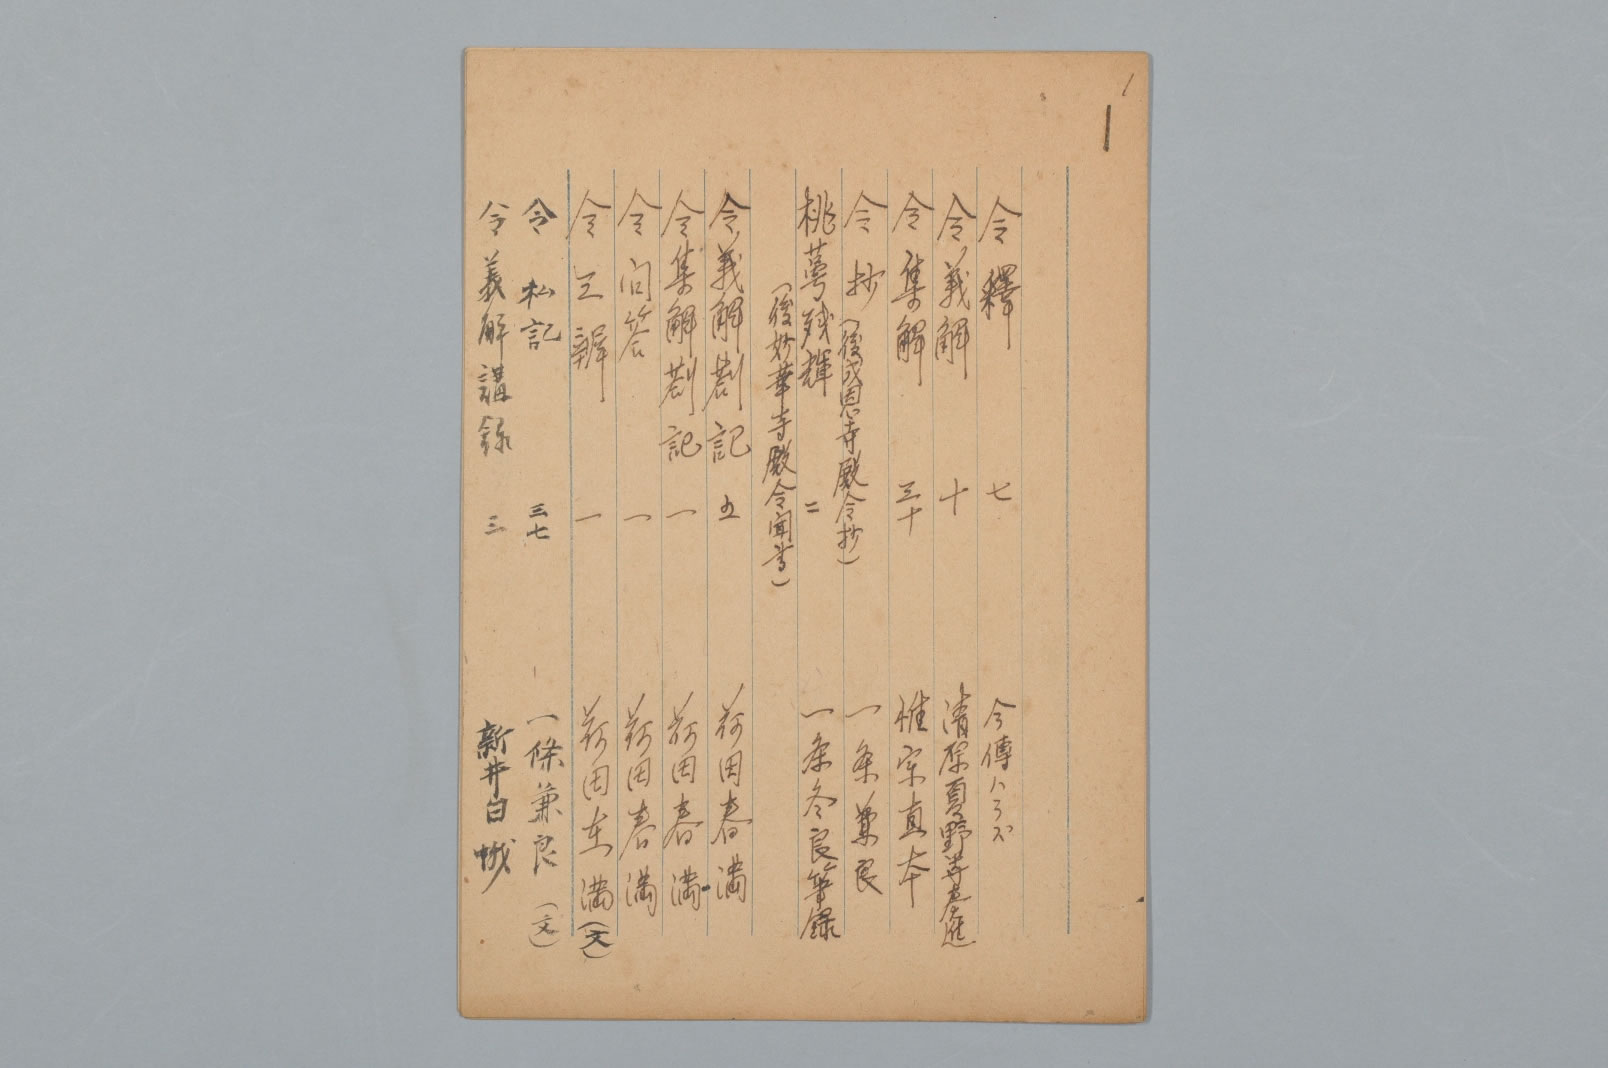 1
令釋 七 今傳ハラズ
令義解 十 清原夏野等奉進
令集解 三十 惟宗直本
令抄(後成恩寺殿令抄) 一条兼良
桃蘂残輝 二 一条冬良筆録
(後妙華寺殿令聞書)
令義解剳記 五 荷田春満
令集解剳記 一 荷田春満
令問答 一 荷田春満
令三辨 一 荷田在満(文)
令私記 三七 一條兼良(文)
令義解講録 三 新井白城